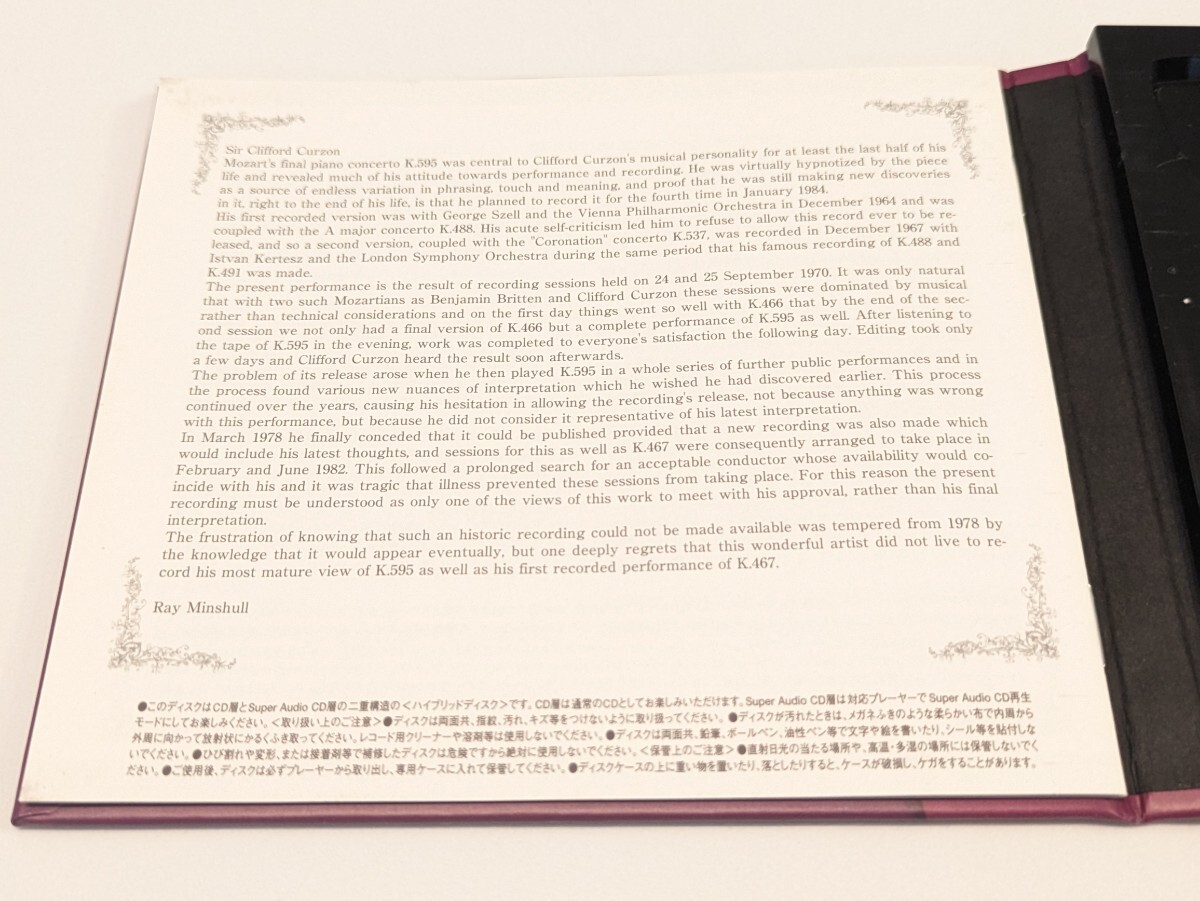 Sir Clifford Curzon
Mozart's final piano concerto K.595 was central to Clifford Curzon's musical personality for at least the last half of his
life and revealed much of his attitude towards performance and recording. He was virtually hypnotized by the piece
as a source of endless variation in phrasing, touch and meaning, and proof that he was still making new discoveries
in it, right to the end of his life, is that he planned to record it for the fourth time in January 1984.
His first recorded version was with George Szell and the Vienna Philharmonic Orchestra in December 1964 and was
coupled with the A major concerto K.488. His acute self-criticism led him to refuse to allow this record ever to be re-
leased, and so a second version, coupled with the "Coronation" concerto K.537, was recorded in December 1967 with
Istvan Kertesz and the London Symphony Orchestra during the same period that his famous recording of K.488 and
K.491 was made.
The present performance is the result of recording sessions held on 24 and 25 September 1970. It was only natural
that with two such Mozartians as Benjamin Britten and Clifford Curzon these sessions were dominated by musical
rather than technical considerations and on the first day things went so well with K.466 that by the end of the sec-
ond session we not only had a final version of K.466 but a complete performance of K.595 as well. After listening to
the tape of K.595 in the evening, work was completed to everyone's satisfaction the following day. Editing took only
a few days and Clifford Curzon heard the result soon afterwards.
The problem of its release arose when he then played K.595 in a whole series of further public performances and in
the process found various new nuances of interpretation which he wished he had discovered earlier. This process
continued over the years, causing his hesitation in allowing the recording's release, not because anything was wrong
with this performance, but because he did not consider it representative of his latest interpretation.
In March 1978 he finally conceded that it could be published provided that a new recording was also made which
would include his latest thoughts, and sessions for this as well as K.467 were consequently arranged to take place in
February and June 1982. This followed a prolonged search for an acceptable conductor whose availability would co-
incide with his and it was tragic that illness prevented these sessions from taking place. For this reason the present
recording must be understood as only one of the views of this work to meet with his approval, rather than his final
interpretation.
The frustration of knowing that such an historic recording could not be made available was tempered from 1978 by
the knowledge that it would appear eventually, but one deeply regrets that this wonderful artist did not live to re-
cord his most mature view of K.595 as well as his first recorded performance of K.467.
Ray Minshull
●このディスクはCD層とSuper Audio CD層の二重構造の<ハイブリッドディスク>です。CD層は通常のCDとしてお楽しみいただけます。Super Audio CD層は対応プレーヤーでSuper Audio CD再生
モードにしてお楽しみください。<取り扱い上のご注意>●ディスクは両面共、指紋、汚れ、キズ等をつけないように取り扱ってください。●ディスクが汚れたときは、メガネふきのような柔らかい布で内周から
外周に向かって放射状にかるくふき取ってください。レコード用クリーナーや溶剤等は使用しないでください。●ディスクは両面共、鉛筆、ボールペン、油性ペン等で文字や絵を書いたり、シール等を貼付しな
いでください。●ひび割れや変形、または接着剤等で補修したディスクは危険ですから絶対に使用しないでください。<保管上のご注意>●直射日光の当たる場所や、高温・多湿の場所には保管しないでく
ださい。●ご使用後、ディスクは必ずプレーヤーから取り出し、専用ケースに入れて保管してください。●ディスクケースの上に重い物を置いたり、落としたりすると、ケースが破損し、ケガをすることがあります。